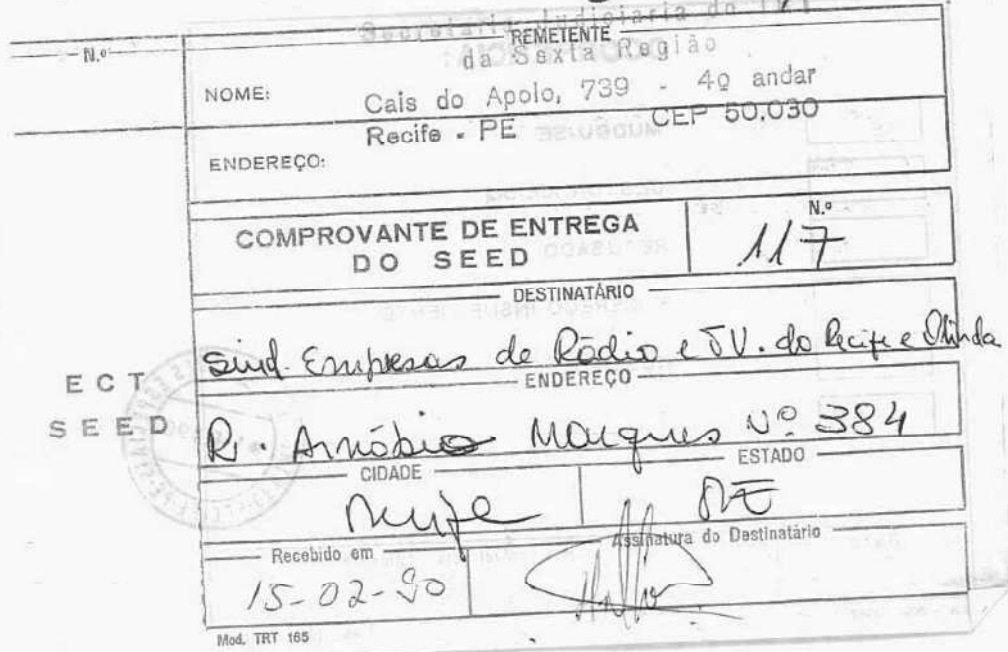 Secretaria Judiciaria do TRT
N.º
REMETENTE
da Sexta Região
NOME:
Cais do Apolo, 739 - 4º andar
Recife - PE CEP 50.030
ENDEREÇO:
COMPROVANTE DE ENTREGA
DO SEED
N.º
117
DESTINATÁRIO
Sind. Empresas de Rádio e TV. do Recife e Olinda
ECT
SEED
ENDEREÇO
R. Arnóbio Marques Nº 384
CIDADE
ESTADO
Recife
PE
Recebido em
Assinatura do Destinatário
15-02-90
Mod. TRT 165